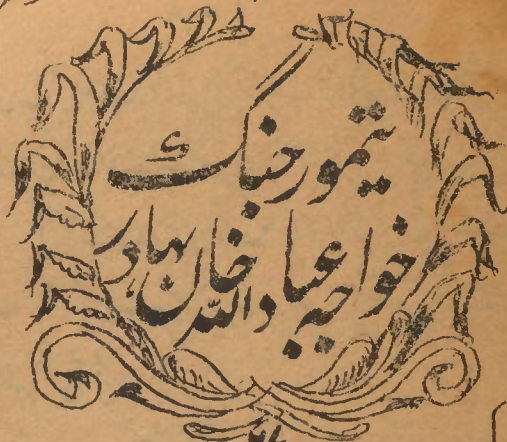 تیمور جنگ
خواجہ عباد اللہ خان بہادر